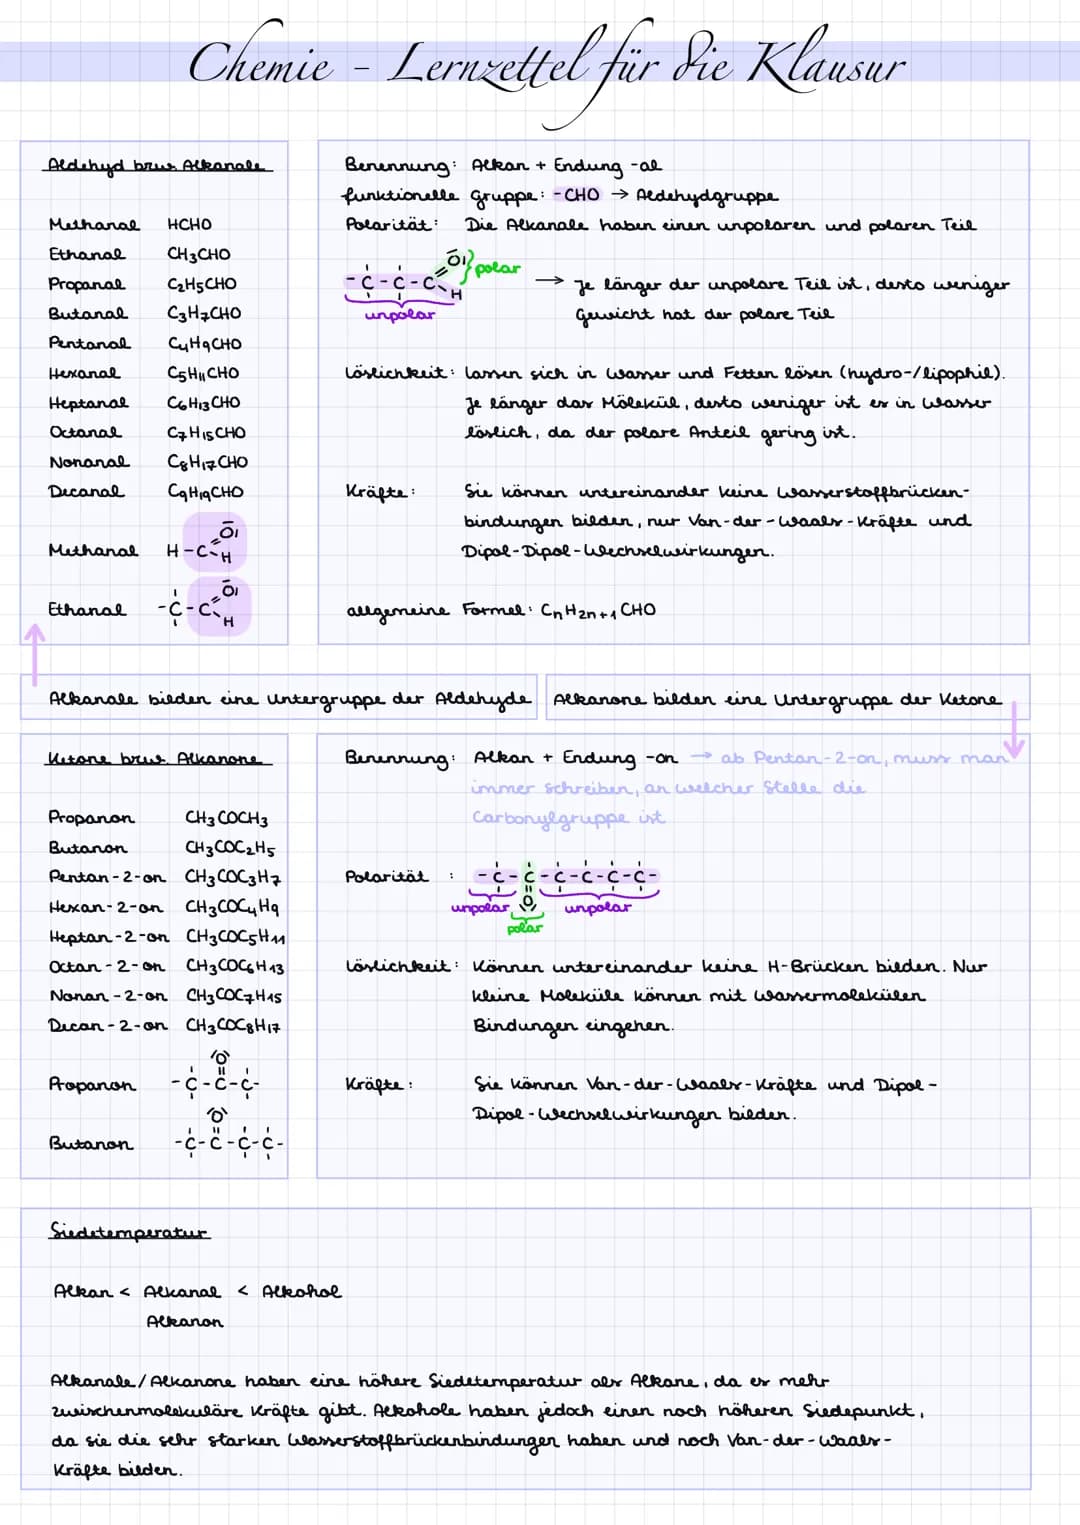 Chemie - Lernzettel für die Klausur
Aldehyd bzw. Alkanale
Methanal HCHO
Ethanal CH3CHO
Propanal C2H5CHO
Butanal C3H7CHO
Pentanal C4H9CHO
Hexanal C5H11CHO
Heptanal C6H13CHO
Octanal C7H15CHO
Nonanal C8H17CHO
Decanal C9H19CHO
Methanal H-C=O H
Ethanal -C-C=O H
Benennung: Alkan + Endung -al
funktionelle Gruppe: -CHO → Aldehydgruppe
Polarität: Die Alkanale haben einen unpolaren und polaren Teil
-C-C-C=O H } polar
unpolar
→ Je länger der unpolare Teil ist, desto weniger
Gewicht hat der polare Teil
Löslichkeit: lassen sich in Wasser und Fetten lösen (hydro-/lipophil).
Je länger das Mölekül, desto weniger ist es in Wasser
löslich, da der polare Anteil gering ist.
Kräfte: Sie können untereinander keine Wasserstoffbrücken-
bindungen bilden, nur Van-der-Waals-Kräfte und
Dipol-Dipol-Wechselwirkungen.
allgemeine Formel: CnH2n+1CHO
Alkanale bilden eine Untergruppe der Aldehyde
Alkanone bilden eine Untergruppe der Ketone
Ketone bzw. Alkanone
Propanon CH3COCH3
Butanon CH3COC2H5
Pentan-2-on CH3COC3H7
Hexan-2-on CH3COC4H9
Heptan-2-on CH3COC5H11
Octan-2-on CH3COC6H13
Nonan-2-on CH3COC7H15
Decan-2-on CH3COC8H17
O
Propanon -C-C-C-
O
Butanon -C-C-C-C-
Benennung: Alkan + Endung -on → ab Pentan-2-on, muss man
immer schreiben, an welcher Stelle die
Carbonylgruppe ist
Polarität : -C-C-C-C-C-C-
unpolar O unpolar
polar
Löslichkeit: Können untereinander keine H-Brücken bilden. Nur
kleine Moleküle können mit Wassermolekülen
Bindungen eingehen.
Kräfte: Sie können Van-der-Waals-Kräfte und Dipol-
Dipol-Wechselwirkungen bilden.
Siedetemperatur
Alkan < Alkanal < Alkohol
Alkanon
Alkanale/Alkanone haben eine höhere Siedetemperatur als Alkane, da es mehr
zwischenmolekuläre Kräfte gibt. Alkohole haben jedoch einen noch höheren Siedepunkt,
da sie die sehr starken Wasserstoffbrückenbindungen haben und noch Van-der-Waals-
Kräfte bilden.